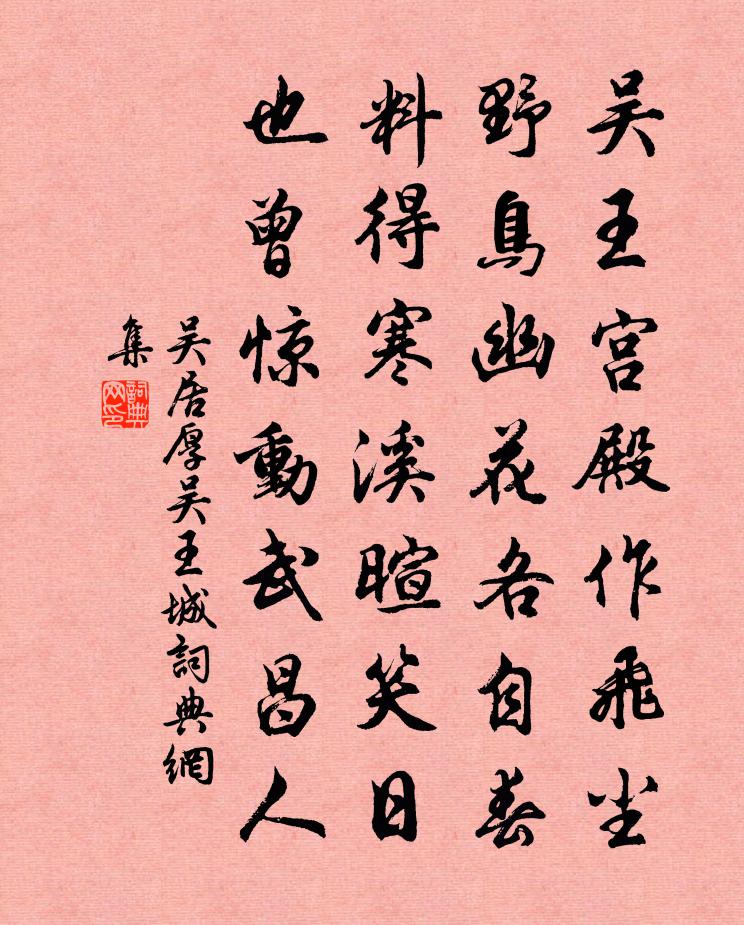 吴王宫殿作飛尘
野鳥幽花各自春
料得寒溪暄笑日
也曾惊動武昌人
吴居厚吴王城詞典網
集
詞典
网印